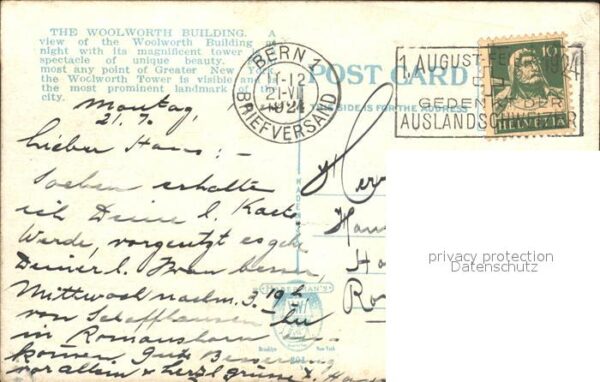 THE WOOLWORTH BUILDING. A
view of the Woolworth Building at
night with its magnificent tower
spectacle of unique beauty.
most any point of Greater New
the Woolworth Tower is visible and
the most prominent landmark of the
city.
POST CARD
THIS SIDE IS FOR THE ADDRESS
BERN 1
11-12
21.VII
1924
BRIEFVERSAND
1. AUGUST-FE 1924
GEDENKT DER
AUSLANDSCHWEIZER
10
HELVETIA
Montag,
21.7.
Lieber Hans: -
Soeben erhalte
ich Deine l. Karte
Werde, es gehe
Deiner l. Frau besser,
Mittwoch nachm. 3.19 h
von Schaffhausen
in Romanshorn
kommen. Gute Besserung
vor allem & herzl. Grüsse
Herr
HABERMAN'S
Brooklyn New York
privacy protection
Datenschutz